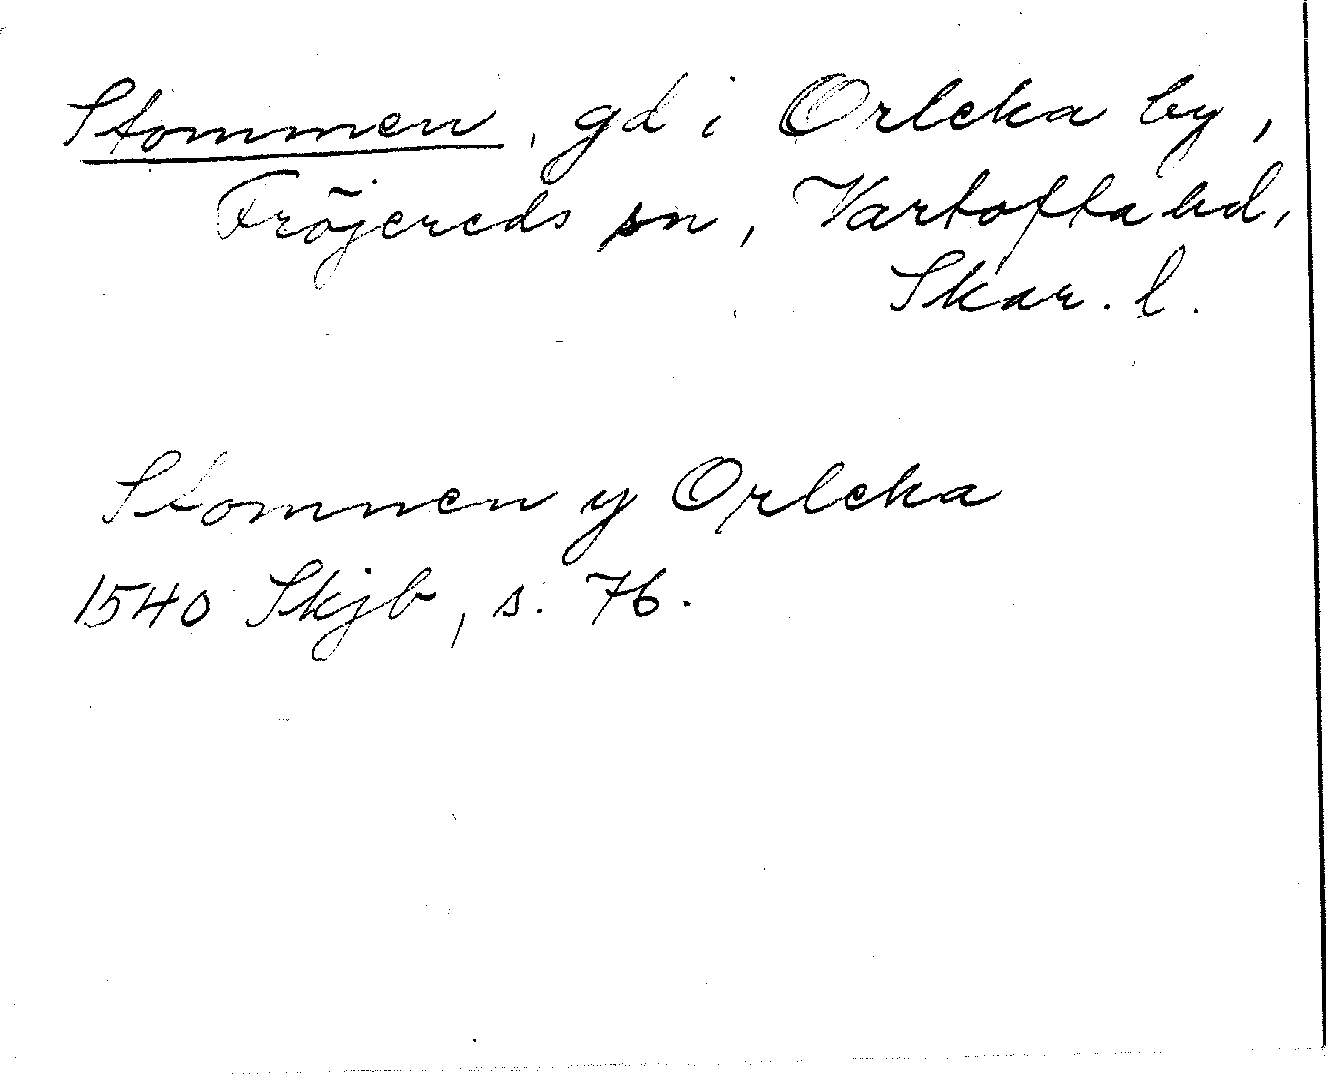 Stommen, gd i Orleka by,
Fröjereds sn, Vartofta hd,
Skar. l.
Stomnen y Orleka
1540 Skjb, s. 76.